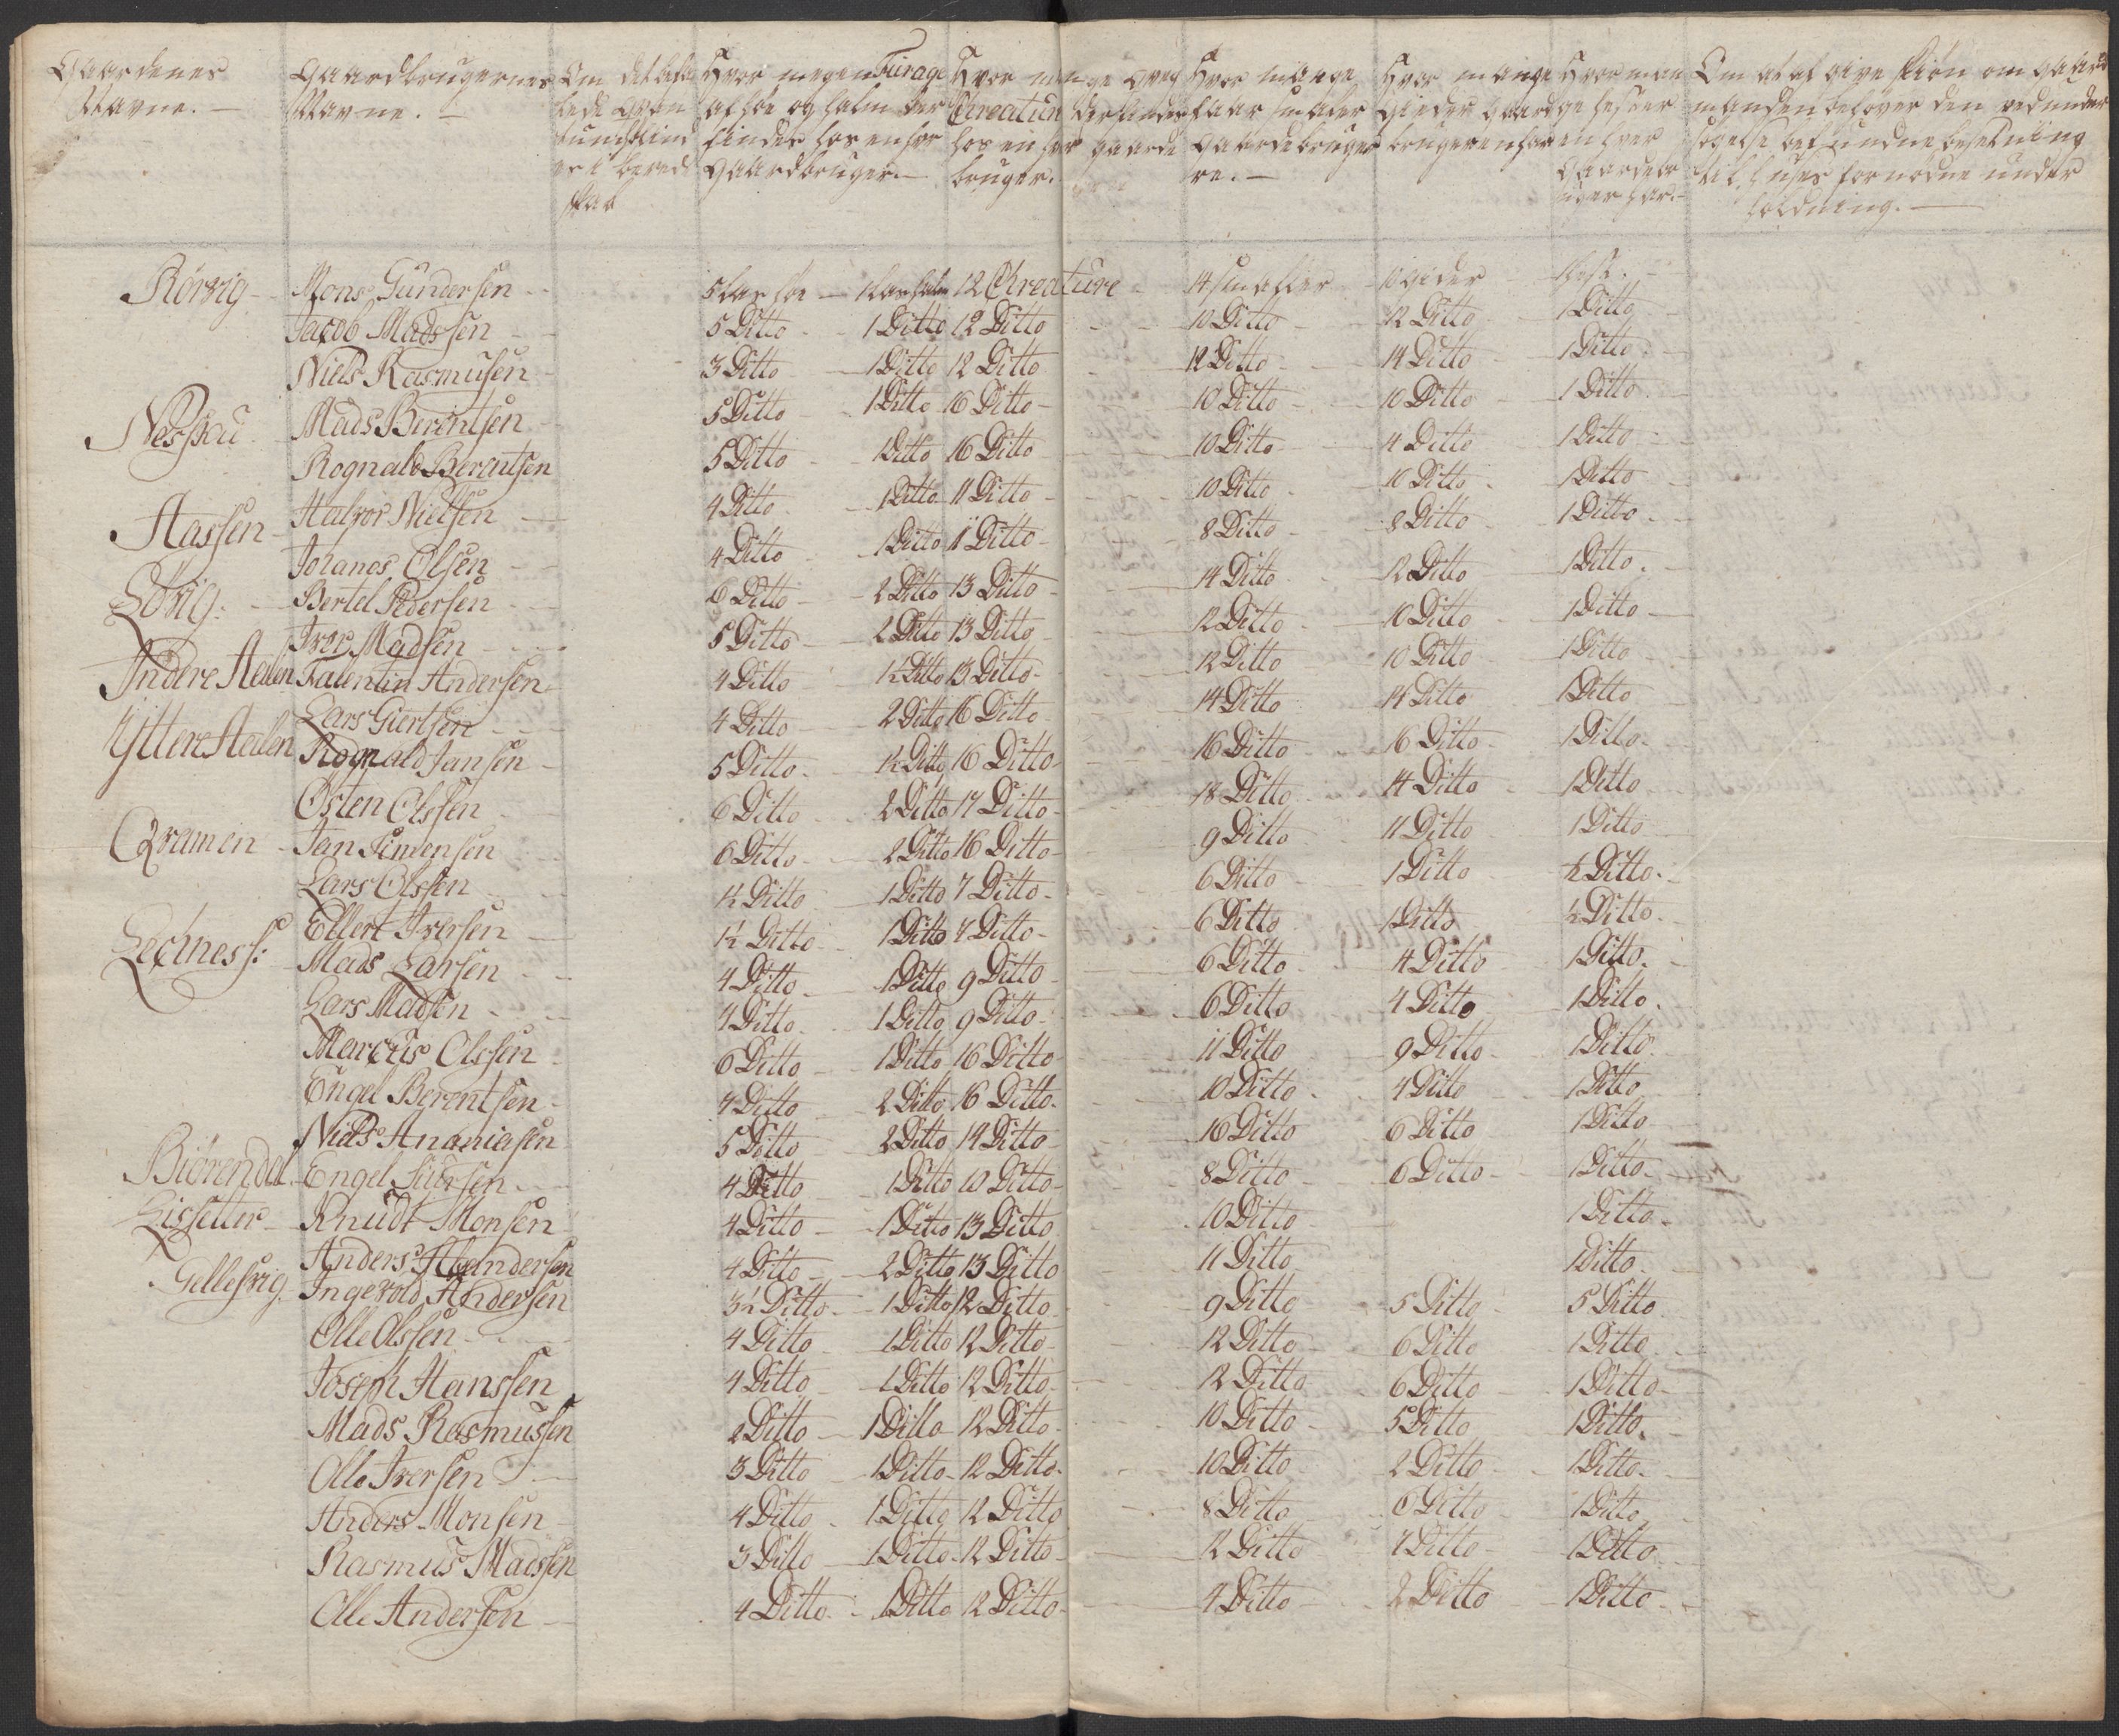 Gaardenes Navne. — Gaardbrugernes Navne. — Om det befalede qvantum Korn er i beredskab Hvor megen Furage af høe og halm der findes hos enhver Gaardbruger — Hvor mange qveg Creaturer der findes hos enhver gaardebruger. Hvor mange faar smaler Gaardebrugere. — Hvor mange Gieder Gaardbrugeren har Hvor mange hester enhver Gaardebruger har. — Om at af give skiøn om gaardmanden behøver den ved undersøgelse befundne besetning til huses fornødne underholdning. —
Rörvig - Mons Gundersen - 5 las høe - 1 las halm 12 Chreature - 14 smaller - 10 gieder - 1 hest. -
Jacob Madssen - 5 Ditto - 1 Ditto 12 Ditto - 10 Ditto - 12 Ditto - 1 Ditto
Niels Rasmusen - 3 Ditto - 1 Ditto 12 Ditto - 12 Ditto - 14 Ditto - 1 Ditto
Nesskou - Mads Berentsen - 5 Ditto - 1 Ditto 16 Ditto - 10 Ditto - 10 Ditto - 1 Ditto
Rognald Berentsen 5 Ditto - 1 Ditto 16 Ditto - 10 Ditto - 4 Ditto - 1 Ditto
Hassen - Halvor Nielsen - 4 Ditto - 1 Ditto 11 Ditto - 10 Ditto - 10 Ditto - 1 Ditto
Johanes Olsen - 4 Ditto - 1 Ditto 11 Ditto - 8 Ditto - 8 Ditto - 1 Ditto
Lövig. - Bertel Pedersen - 6 Ditto - 2 Ditto 13 Ditto - 14 Ditto - 12 Ditto - 1 Ditto
Iver Madsen - 5 Ditto - 2 Ditto 13 Ditto - 12 Ditto - 10 Ditto - 1 Ditto
Indere Aalen Falentin Andersen - 4 Ditto 1½ Ditto 13 Ditto - 12 Ditto - 10 Ditto - 1 Ditto
Lars Giertsen - 4 Ditto - 2 Ditto 16 Ditto - 14 Ditto - 14 Ditto - 1 Ditto
Yttere Aalen Rognald Jansen - 5 Ditto - 1½ Ditto 16 Ditto - 16 Ditto - 16 Ditto - 1 Ditto
Östen Olssen - 6 Ditto - 2 Ditto 17 Ditto - 18 Ditto - 14 Ditto - 1 Ditto
Qvamen - Jan Simensen - 6 Ditto - 2 Ditto 16 Ditto - 9 Ditto - 11 Ditto - 1 Ditto
Lars Olssen - 1½ Ditto - 1 Ditto 7 Ditto - 6 Ditto - 1 Ditto - ½ Ditto
Ellert Iversen - 1½ Ditto - 1 Ditto 7 Ditto - 6 Ditto - 1 Ditto - ½ Ditto
Lechness: Mads Larsen - 4 Ditto - 1 Ditto 9 Ditto - 6 Ditto - 4 Ditto - 1 Ditto
Lars Madsen - 4 Ditto - 1 Ditto 9 Ditto - 6 Ditto - 4 Ditto - 1 Ditto
Marcus Olssen - 6 Ditto - 1 Ditto 16 Ditto - 11 Ditto - 9 Ditto - 1 Ditto
Engel Berentsen - 4 Ditto - 2 Ditto 16 Ditto - 10 Ditto - 4 Ditto - 1 Ditto
Niels Ananiasen 5 Ditto - 2 Ditto 14 Ditto - 16 Ditto - 6 Ditto 1 Ditto
Biörendal - Engel - 4 Ditto - 1 Ditto 10 Ditto - 8 Ditto - 6 Ditto - 1 Ditto
Lissetter - Knudt Monsen 4 Ditto - 1 Ditto 13 Ditto - 10 Ditto 1 Ditto
Anders 4 Ditto - 2 Ditto 13 Ditto 11 Ditto 1 Ditto
Gellesvig. Ingevold Andersen 3½ Ditto - 1 Ditto 12 Ditto - 9 Ditto - 5 Ditto - 5 Ditto
Olle Olssen - 4 Ditto - 1 Ditto 12 Ditto - 12 Ditto - 6 Ditto - 1 Ditto
Joseph Hanssen 4 Ditto - 1 Ditto 12 Ditto - 12 Ditto - 6 Ditto - 1 Ditto
Mads Rasmussen 2 Ditto - 1 Ditto 12 Ditto - 10 Ditto - 5 Ditto - 1 Ditto
Olle Iversen - 3 Ditto - 1 Ditto - 12 Ditto - 10 Ditto - 2 Ditto - 1 Ditto
Anders Monsen - 4 Ditto - 1 Ditto 12 Ditto - 8 Ditto - 6 Ditto - 1 Ditto
Rasmus Madssen 3 Ditto - 1 Ditto - 12 Ditto - 12 Ditto - 7 Ditto - 1 Ditto
Olle Andersen - 4 Ditto - 1 Ditto 12 Ditto - 4 Ditto - 2 Ditto - 1 Ditto